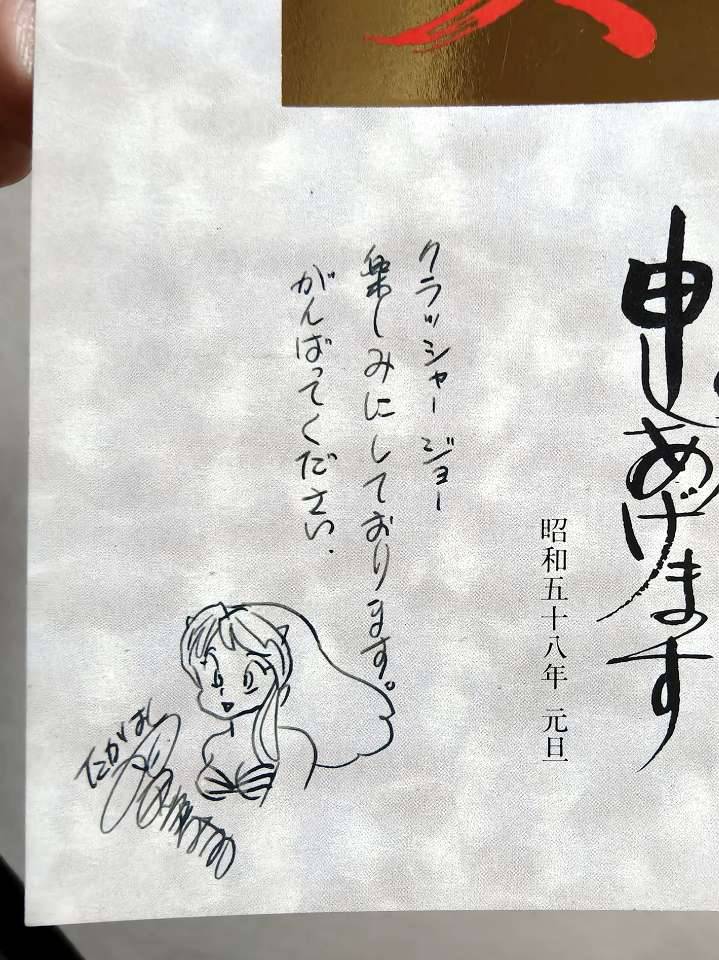 申しあげます
昭和五十八年 元旦
クラッシャージョー
楽しみにしております。
がんばってください.
たかはし